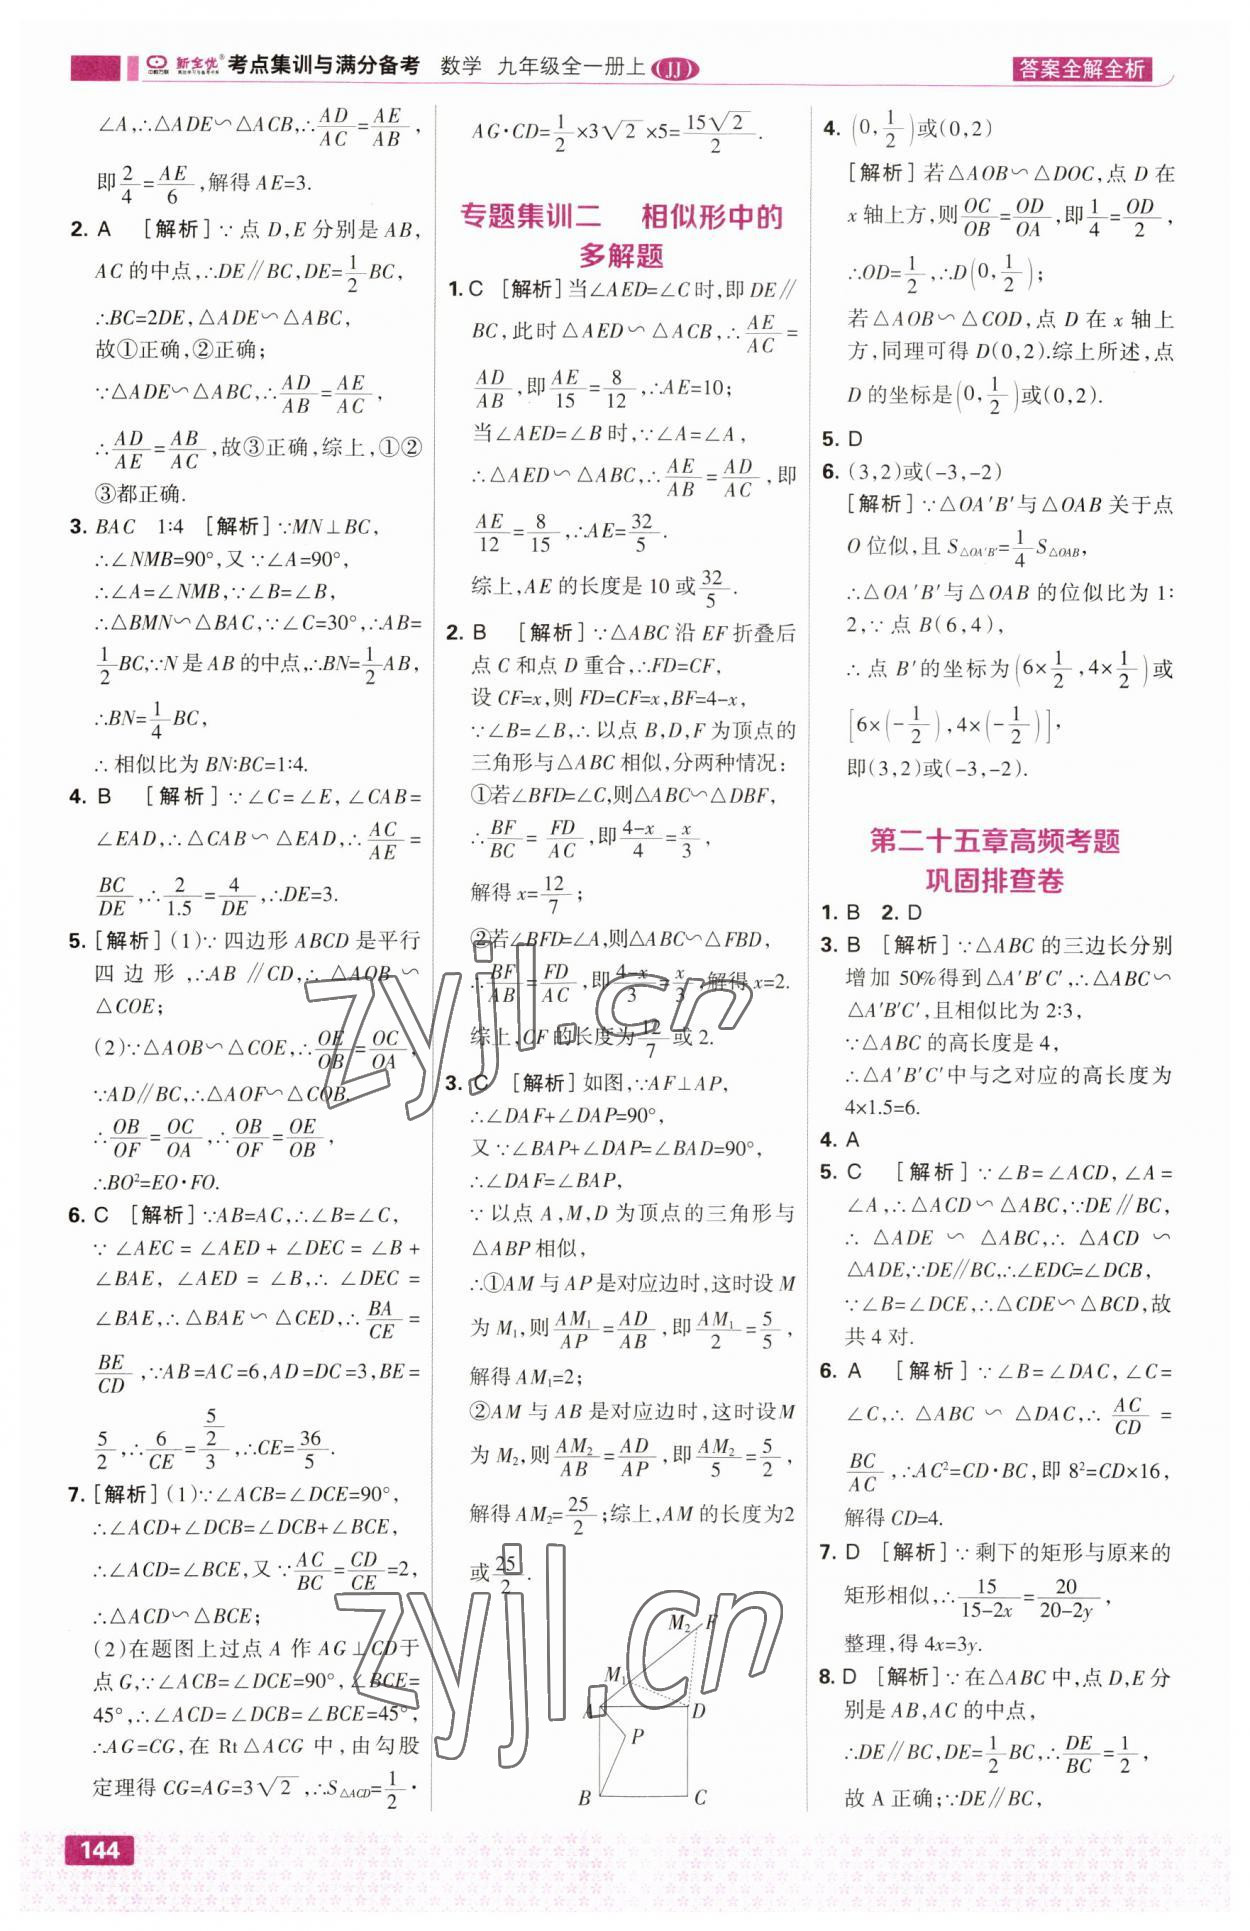 中教万联 新全优® 考点集训与满分备考 数学 九年级全一册上 (JJ)
答案全解全析
∠A,∴△ADE∽△ACB,∴AD/AC=AE/AB,
即2/4=AE/6,解得 AE=3.
2. A [解析]∵点 D,E 分别是 AB,
AC 的中点,∴DE∥BC,DE=1/2BC,
∴BC=2DE,△ADE∽△ABC,
故①正确,②正确;
∵△ADE∽△ABC,∴AD/AB=AE/AC,
∴AD/AE=AB/AC,故③正确,综上,①②
③都正确.
3. BAC 1∶4 [解析]∵MN⊥BC,
∴∠NMB=90°,又∵∠A=90°,
∴∠A=∠NMB,∵∠B=∠B,
∴△BMN∽△BAC,∵∠C=30°,∴AB=
1/2BC,∵N 是 AB 的中点,∴BN=1/2AB,
∴BN=1/4BC,
∴相似比为 BN∶BC=1∶4.
4. B [解析]∵∠C=∠E,∠CAB=
∠EAD,∴△CAB∽△EAD,∴AC/AE=
BC/DE,∴2/1.5=4/DE,∴DE=3.
5. [解析](1)∵四边形 ABCD 是平行
四边形,∴AB∥CD,∴△AOB∽
△COE;
(2)∵△AOB∽△COE,∴OE/OB=OC/OA,
∵AD∥BC,∴△AOF∽△COB,
∴OB/OF=OC/OA,∴OB/OF=OE/OB,
∴BO²=EO·FO.
6. C [解析]∵AB=AC,∴∠B=∠C,
∵∠AEC=∠AED+∠DEC=∠B+
∠BAE,∠AED=∠B,∴∠DEC=
∠BAE,∴△BAE∽△CED,∴BA/CE=
BE/CD,∵AB=AC=6,AD=DC=3,BE=
5/2,∴6/CE=(5/2)/3,∴CE=36/5.
7. [解析](1)∵∠ACB=∠DCE=90°,
∴∠ACD+∠DCB=∠DCB+∠BCE,
∴∠ACD=∠BCE,又∵AC/BC=CD/CE=2,
∴△ACD∽△BCE;
(2)在题图上过点 A 作 AG⊥CD于
点G,∵∠ACB=∠DCE=90°,∠BCE=
45°,∴∠ACD=∠DCB=∠BCE=45°,
∴AG=CG,在 Rt△ACG 中,由勾股
定理得 CG=AG=3√2,∴S△ACD=1/2·
AG·CD=1/2×3√2×5=15√2/2.
专题集训二 相似形中的
多解题
1. C [解析]当∠AED=∠C时,即DE∥
BC,此时△AED∽△ACB,∴AE/AC=
AD/AB,即AE/15=8/12,∴AE=10;
当∠AED=∠B时,∵∠A=∠A,
∴△AED∽△ABC,∴AE/AB=AD/AC,即
AE/12=8/15,∴AE=32/5.
综上,AE 的长度是 10 或32/5.
2. B [解析]∵△ABC 沿 EF 折叠后
点 C 和点 D 重合,∴FD=CF,
设 CF=x,则 FD=CF=x,BF=4-x,
∵∠B=∠B,∴以点 B,D,F 为顶点的
三角形与△ABC相似,分两种情况:
①若∠BFD=∠C,则△ABC∽△DBF,
∴BF/BC=FD/AC,即(4-x)/4=x/3,
解得 x=12/7;
②若∠BFD=∠A,则△ABC∽△FBD,
∴BF/AB=FD/AC,即(4-x)/3=x/3,解得 x=2.
综上,CF 的长度为12/7或 2.
3. C [解析]如图,∵AF⊥AP,
∴∠DAF+∠DAP=90°,
又∵∠BAP+∠DAP=∠BAD=90°,
∴∠DAF=∠BAP,
∵以点 A,M,D 为顶点的三角形与
△ABP相似,
∴①AM 与 AP是对应边时,这时设 M
为 M₁,则AM₁/AP=AD/AB,即AM₁/2=5/5,
解得 AM₁=2;
②AM 与 AB 是对应边时,这时设M
为 M₂,则AM₂/AB=AD/AP,即AM₂/5=5/2,
解得 AM₂=25/2;综上,AM 的长度为2
或25/2.
M₂ F
M₁
A D
P
B C
4. (0,1/2)或(0,2)
[解析]若△AOB∽△DOC,点 D 在
x 轴上方,则OC/OB=OD/OA,即1/4=OD/2,
∴OD=1/2,∴D(0,1/2);
若△AOB∽△COD,点 D 在 x 轴上
方,同理可得 D(0,2).综上所述,点
D 的坐标是(0,1/2)或(0,2).
5. D
6. (3,2)或(-3,-2)
[解析]∵△OA′B′与△OAB 关于点
O 位似,且 S△OA′B′=1/4S△OAB,
∴△OA′B′与△OAB 的位似比为 1∶
2,∵点 B(6,4),
∴点 B′的坐标为(6×1/2,4×1/2)或
[6×(-1/2),4×(-1/2)],
即(3,2)或(-3,-2).
第二十五章高频考题
巩固排查卷
1. B 2. D
3. B [解析]∵△ABC 的三边长分别
增加 50%得到△A′B′C′,∴△ABC∽
△A′B′C′,且相似比为 2∶3,
∵△ABC 的高长度是 4,
∴△A′B′C′中与之对应的高长度为
4×1.5=6.
4. A
5. C [解析]∵∠B=∠ACD,∠A=
∠A,∴△ACD∽△ABC,∵DE∥BC,
∴△ADE∽△ABC,∴△ACD∽
△ADE,∵DE∥BC,∴∠EDC=∠DCB,
∵∠B=∠DCE,∴△CDE∽△BCD,故
共 4 对.
6. A [解析]∵∠B=∠DAC,∠C=
∠C,∴△ABC∽△DAC,∴AC/CD=
BC/AC,∴AC²=CD·BC,即 8²=CD×16,
解得 CD=4.
7. D [解析]∵剩下的矩形与原来的
矩形相似,∴15/(15-2x)=20/(20-2y),
整理,得 4x=3y.
8. D [解析]∵在△ABC 中,点 D,E 分
别是 AB,AC 的中点,
∴DE∥BC,DE=1/2BC,∴DE/BC=1/2,
故 A 正确;∵DE∥BC,
144
zyjl.cn
zyjl.cn